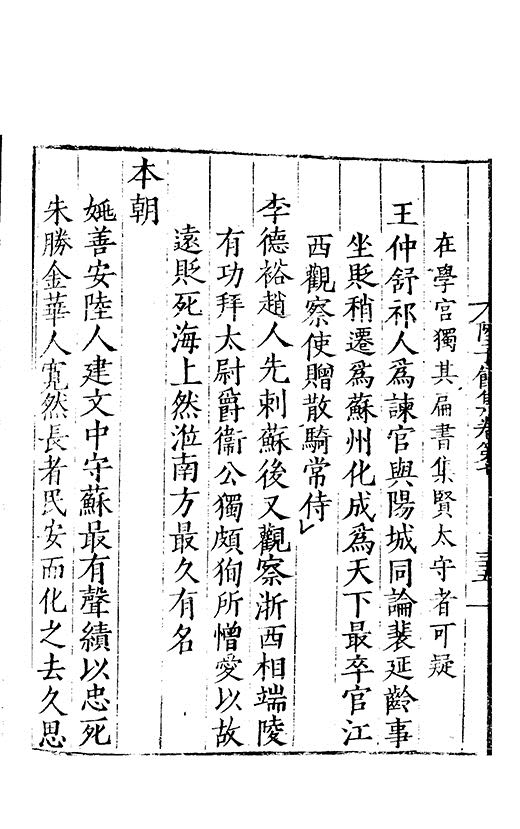 在學官獨其扁書集賢太守者可疑
王仲舒祁人爲諫官與陽城同論裴延齡事
坐貶稍遷爲蘇州化成爲天下最卒官江
西觀察使贈散騎常侍
李德裕趙人先刺蘇後又觀察浙西相端陵
有功拜太尉爵衞公獨頗徇所憎愛以故
遠貶死海上然涖南方最久有名
本朝
姚善安陸人建文中守蘇最有聲績以忠死
朱勝金華人寬然長者民安而化之去久思